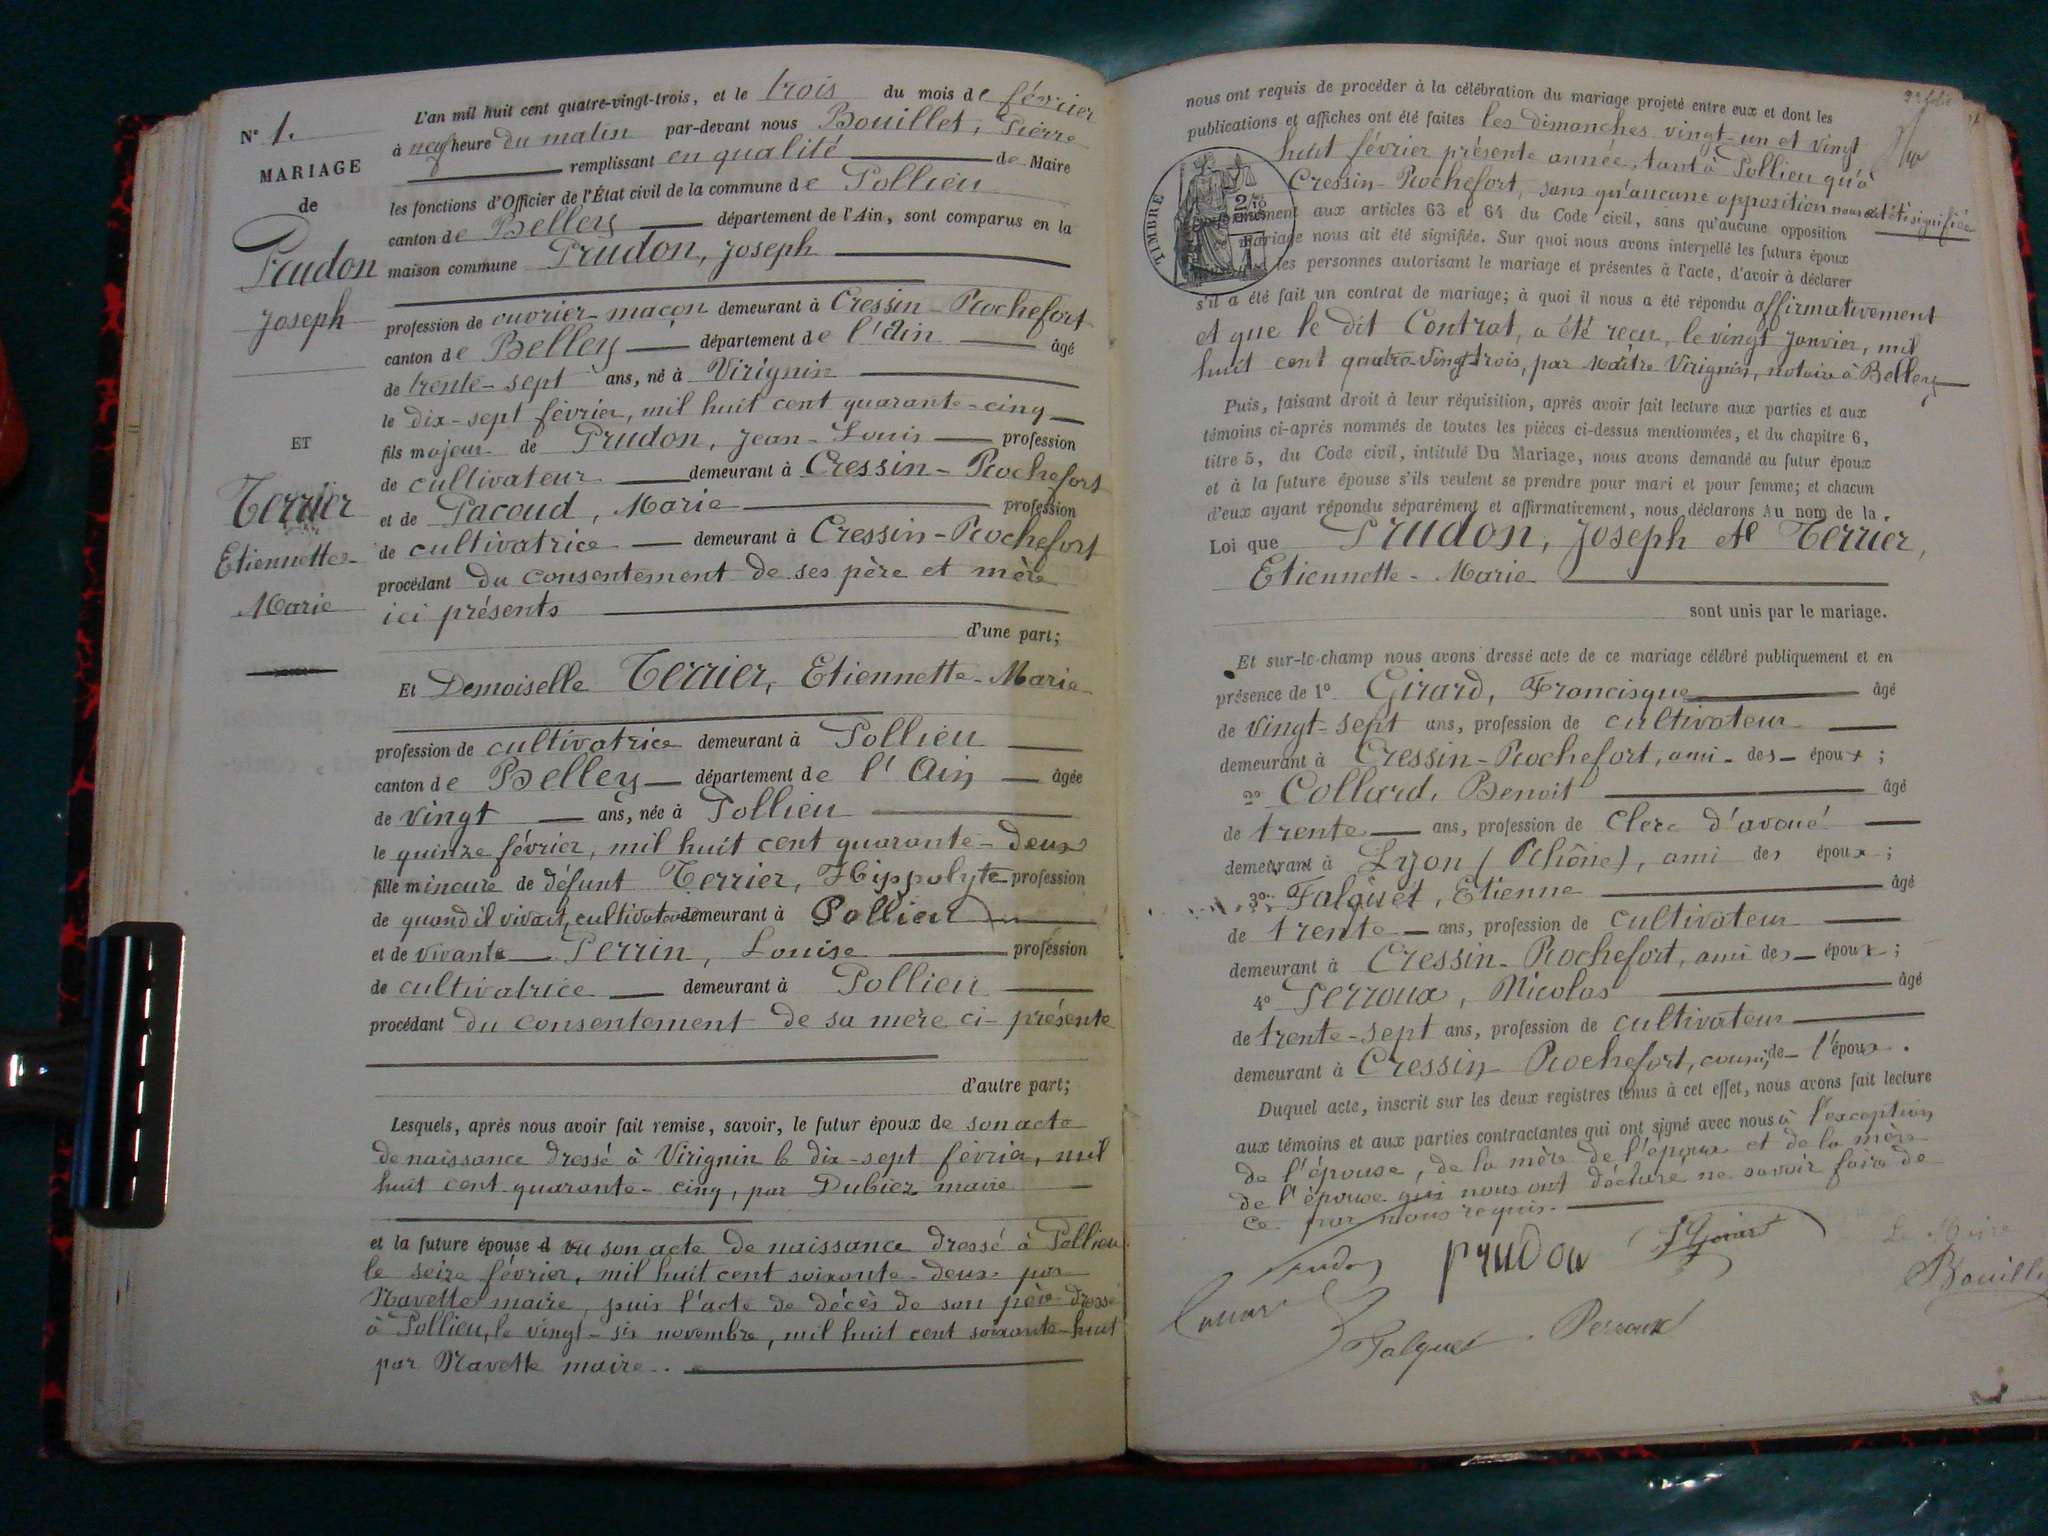 N° 1.
MARIAGE
de
Prudon
Joseph
ET
Terrier
Etiennette-
Marie
L'an mil huit cent quatre-vingt-trois, et le trois du mois de février
à neuf heure du matin par-devant nous Bouillet, Pierre
remplissant en qualité de Maire
les fonctions d'Officier de l'État civil de la commune de Pollieu
canton de Belley département de l'Ain, sont comparus en la
maison commune Prudon, Joseph
profession de ouvrier-maçon demeurant à Cressin-Rochefort
canton de Belley département de l'Ain âgé
de trente-sept ans, né à Virignin
le dix-sept février, mil huit cent quarante-cinq
fils majeur de Prudon, Jean-Louis profession
de cultivateur demeurant à Cressin-Rochefort
et de Pacoud, Marie profession
de cultivatrice demeurant à Cressin-Rochefort
procédant du consentement de ses père et mère
ici présents
d'une part;
Et Demoiselle Terrier, Etiennette-Marie
profession de cultivatrice demeurant à Pollieu
canton de Belley département de l'Ain âgée
de vingt ans, née à Pollieu
le quinze février, mil huit cent quarante-deux
fille mineure de défunt Terrier, Hippolyte profession
de quand il vivait, cultivateur demeurant à Pollieu
et de vivante Perrin, Louise profession
de cultivatrice demeurant à Pollieu
procédant du consentement de sa mère ci-présente
d'autre part;
Lesquels, après nous avoir fait remise, savoir, le futur époux de son acte
de naissance dressé à Virignin le dix-sept février, mil
huit cent quarante-cinq, par Dubiez maire
et la future épouse d vu son acte de naissance dressé à Pollieu
le seize février, mil huit cent soixante-deux par
Navette maire, puis l'acte de décès de son père dressé
à Pollieu, le vingt-six novembre, mil huit cent soixante-huit
par Navette maire.
2e folio
nous ont requis de procéder à la célébration du mariage projeté entre eux et dont les
publications et affiches ont été faites les dimanches vingt-un et vingt
huit février présente année, tant à Pollieu qu'à
Cressin-Rochefort, sans qu'aucune opposition nous ait été signifiée
TIMBRE
aux articles 63 et 64 du Code civil, sans qu'aucune opposition
mariage nous ait été signifiée. Sur quoi nous avons interpellé les futurs époux
les personnes autorisant le mariage et présentes à l'acte, d'avoir à déclarer
s'il a été fait un contrat de mariage; à quoi il nous a été répondu affirmativement
et que le dit Contrat, a été reçu, le vingt Janvier, mil
huit cent quatre-vingt-trois, par Maître Virignin, notaire à Belley
Puis, faisant droit à leur réquisition, après avoir fait lecture aux parties et aux
témoins ci-après nommés de toutes les pièces ci-dessus mentionnées, et du chapitre 6,
titre 5, du Code civil, intitulé Du Mariage, nous avons demandé au futur époux
et à la future épouse s'ils veulent se prendre pour mari et pour femme; et chacun
d'eux ayant répondu séparément et affirmativement, nous déclarons Au nom de la
Loi que Prudon, Joseph et Terrier,
Etiennette-Marie
sont unis par le mariage.
Et sur-le-champ nous avons dressé acte de ce mariage célébré publiquement et en
présence de 1° Girard, Francisque âgé
de vingt-sept ans, profession de cultivateur
demeurant à Cressin-Rochefort, ami des époux;
2° Collard, Benoit âgé
de trente ans, profession de clerc d'avoué
demeurant à Lyon (Rhône), ami des époux;
3° Falquet, Etienne âgé
de trente ans, profession de cultivateur
demeurant à Cressin-Rochefort, ami des époux;
4° Perroux, Nicolas âgé
de trente-sept ans, profession de cultivateur
demeurant à Cressin-Rochefort, cousin de l'époux.
Duquel acte, inscrit sur les deux registres tenus à cet effet, nous avons fait lecture
aux témoins et aux parties contractantes qui ont signé avec nous à l'exception
de l'épouse, de la mère de l'époux et de la mère
de l'épouse qui nous ont déclaré ne savoir faire de
ce par nous requis.
Prudon prudon Girard Le Maire
Bouillet
Falquet Perroux